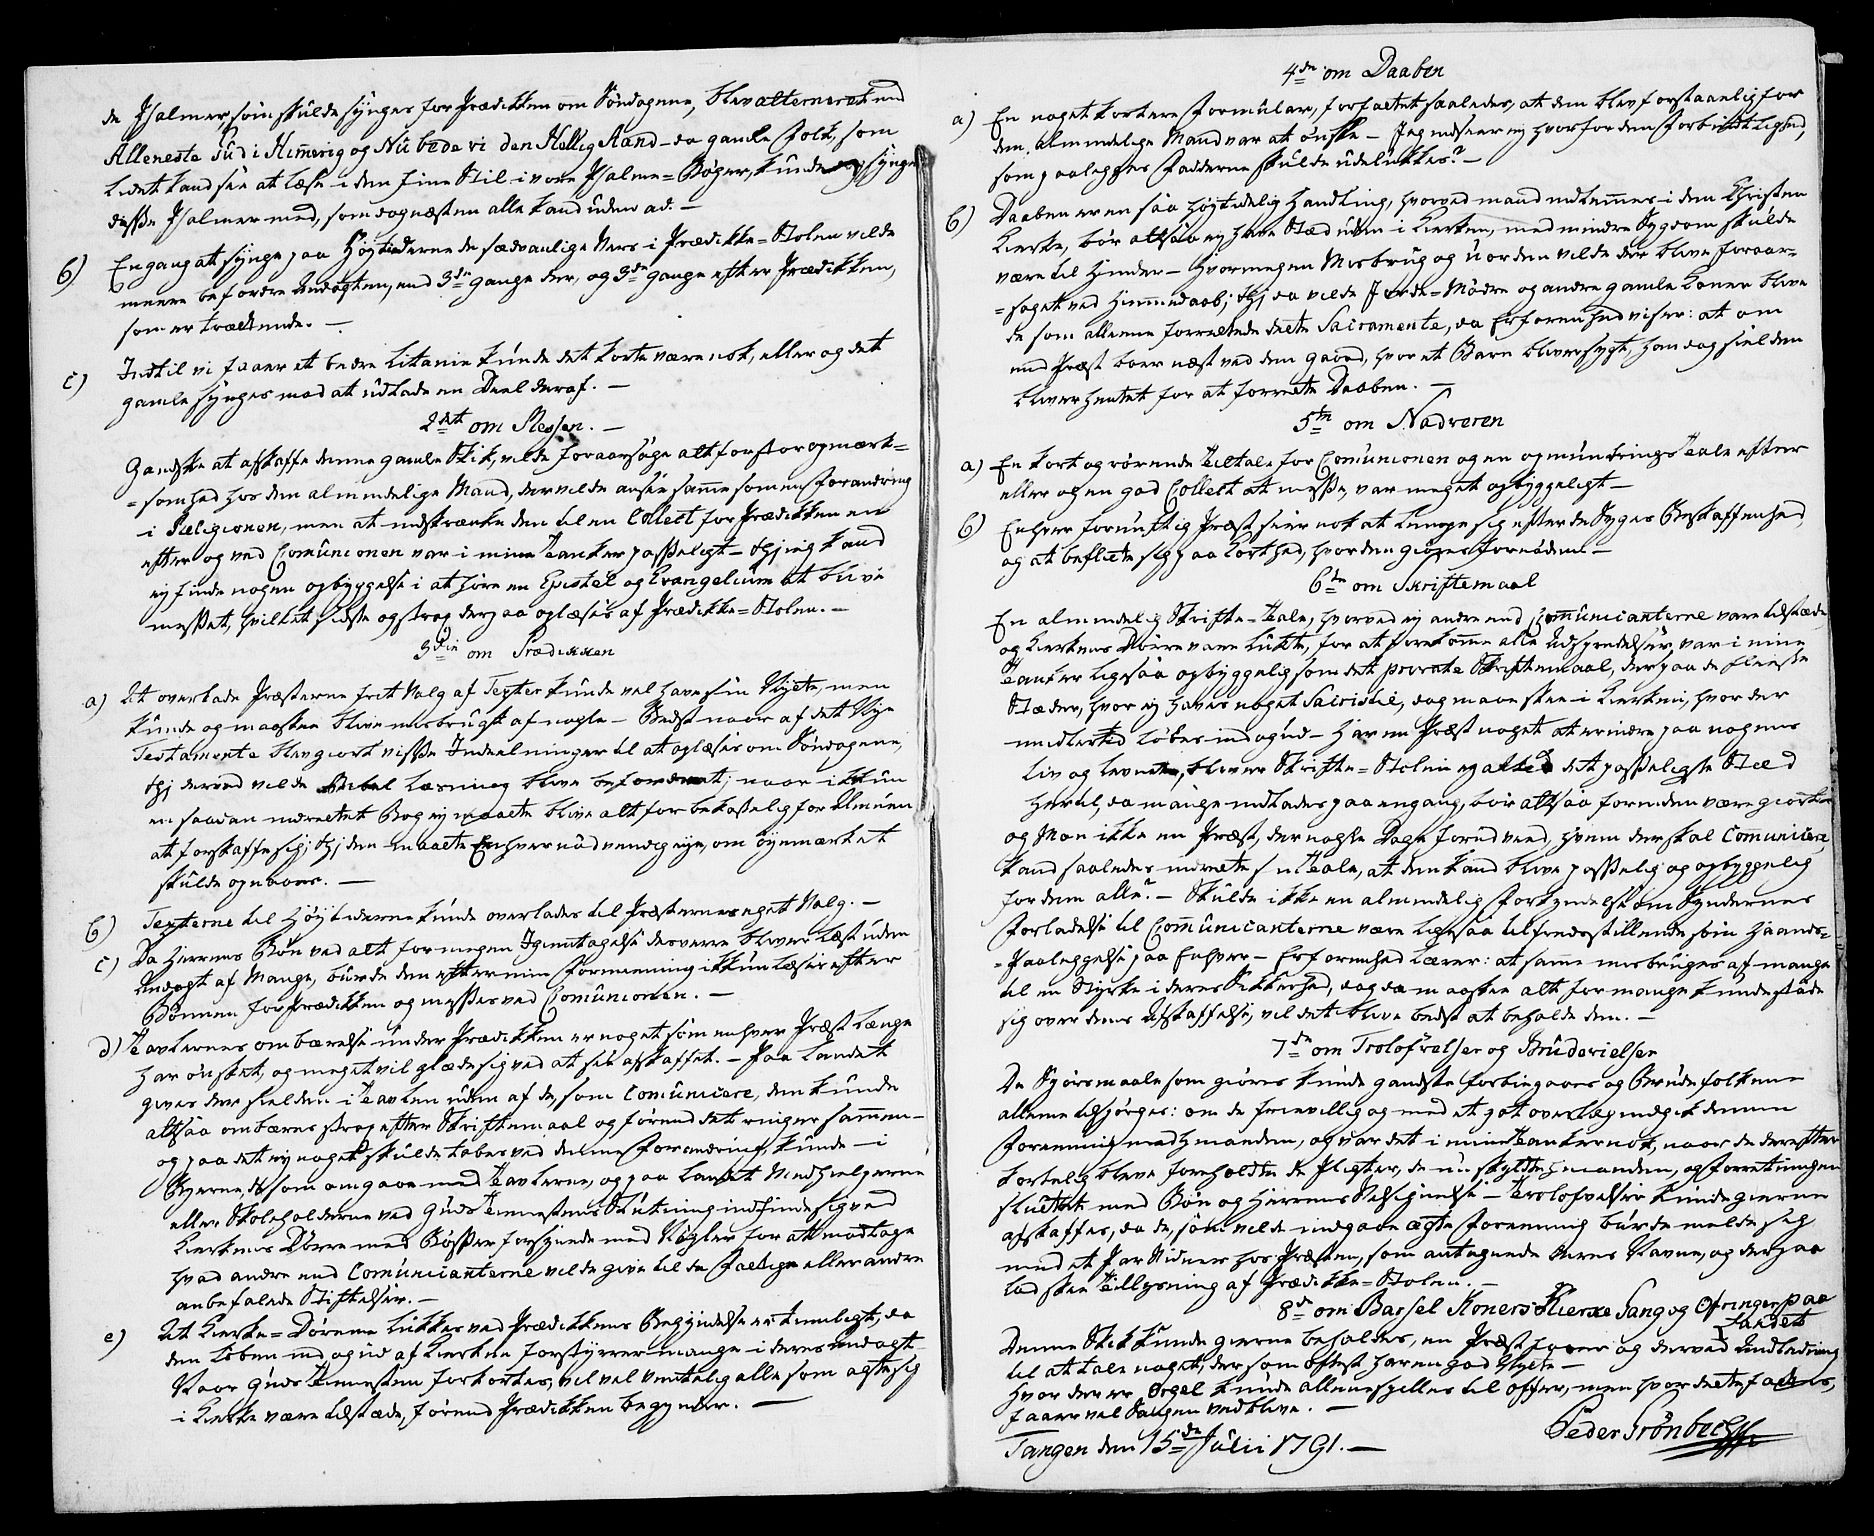 de Psalmer, som skulde synges for Prædikken om Søndagene, blev alterneret med
Alleneste Gud i Himmerig og Nu bede vi den Hellig Aand – da gamle Folk, som
lidet kand see at læse i den fine Stil i vore Psalme=Bøger, kunde og synge
disse Psalmer med, som dog næsten alle kand uden ad. –
b) Engang at synge paa Høytiderne de sædvanlige Vers i Prædikke=Stolen vilde
meere befordre Andagten, end 3de gange før, og 3de gange efter Prædikken,
som er trættende. –
c) Indtil vi faaer et bedre Litanie kunde det korte være nok, eller og det
gamle synges med at udlade en Deel deraf. –
2det om Messen. –
Gandske at afskaffe denne gamle Skik, vilde foraarsage alt for stor opmærk=
=somhed hos den almindelige Mand, der vilde ansee samme som en Forandring
i Religionen, men at indskrænke den til en Collect for Prædikken en
efter og ved Communionen var i mine Tanker passeligt – thj jeg kand
ej finde nogen opbyggelse i at høre en Epistel og Evangelium at blive
messet, hvilket sidste og strax derpaa oplæses af Prædikke=Stolen. –
3die om Prædikken
a) At overlade Præsterne frit Valg af Texter kunde vel have sin Nytte, men
kunde og maaskee blive misbrugt af nogle – Bedst naar af det Nye
Testamente blev giort visse Indeelninger til at oplæses om Søndagene,
thj derved vilde Bibel Læsning blive befordret, naar ikkun
en saadan indrettet Bog ej maatte blive alt for bekostelig for Almuen
at forskaffe sig; thj den maatte Enhver nødvendig eye, om øyemærket
skulde opnaaes. –
b) Texterne til Høytiderne kunde overlades til Præsternes eget Valg. –
c) Da Herrens Bøn ved alt for megen Igientagelse desverre bliver læst uden
Andagt af Mange, burde den efter min Formeening ikkun læses efter
Bønnen for Prædikken og messes ved Communionen. –
d) Tavlernes ombærelse under Prædikken er noget som enhver Præst længe
har ønsket, og meget vil glæde sig ved at see afskaffet. – Paa Landet
gives der sielden i Tavlen uden af de, som Communicere, den kunde
altsaa ombæres strax efter Skriftemaal og førend det ringer sammen –
og paa det ej noget skulde tabes ved denne Forandring, kunde – i
Byerne, de som omgaae med Tavlerne, og paa Landet Medhielperne
eller Skoleholderne ved Guds Tienestens Slutning indfinde sig ved
Kierkens Dørre med Bøsser forsynede med Nøgler for at modtage
hvad andre end Communicanterne vilde give til de Fattige eller andre
anbefalede Stiftelser. –
e) At Kierke=Dørene lukkes ved Prædikkens Begyndelse er tienligt, da
den løben ind og ud af Kierken forstyrrer mange i deres Andagt
Naar Guds Tienesten forkortes, vil vel ventelig alle som agte sig
i Kierke være tilstæde, førend Prædikken begynder. –
4de om Daaben
a) En noget kortere Formular, forfattet saaledes, at den blev forstaaelig for
den almindelige Mand var at ønske – Jeg indseer ej hvorfor den Forbindtlighed,
som paalegges Fadderne skulde udelukkes? –
b) Daaben er en saa høytidelig Handling, hvorved mand indlemmes i den Christen
Kierke, bør altsaa ej have Stæd uden i Kierken, med mindre Sygdom skulde
være til Hinder – Hvormegen Misbrug og Uorden vilde der blive foraar=
=saget ved Hiemmedaab; thj da vilde Jorde=Mødre og andre gamle Koner blive
de som alleene forrettede dette Sacramente, da Erfarenhed viser: at om
end Præst boer næst ved den gaard, hvor et Barn bliver sygt, han dog sielden
bliver hentet for at forrette Daaben. –
5te om Nadveren
a) En kort og rørende Tiltale for Communionen og en opmuntrings Tale efter
eller og en god Collect at messe, var meget opbyggeligt –
b) Enhver fornuftig Præst seer nok at lempe sig efter de Syges Beskaffenhed,
og at beflitte sig paa Korthed, hvor den giøres fornøden –
6te om Skriftemaal
En almindelig Skrifte=Tale, hvorved ej andre end Communicanterne vare tilstæde
og Kierkens Dørre vare lukte, for at forekomme alle Adspredelser, var i mine
Tanker ligesaa opbyggelig som det private Skriftemaal, der paa de fleeste
Stæder, hvor ej haves noget Sacristie, dog maae skee i Kierken, hvor der
imidlertid løbes ind og ud – Har en Præst noget at erindre paa nogens
Liv og Levnet, bliver Skrifte=Stolen ey altid det passeligste Stæd
hertil, da mange indlades paa engang, bør altsaa forinden være giort
og Mon ikke en Præst, der nogle Dage forud veed, hvem der skal Communicere,
kand saaledes indrette sin Tale, at den kand blive passelig og opbyggelig
for dem alle? – Skulde ikke en almindelig Forkyndelse om Syndernes
Forladelse til Communicanterne være ligesaa tilfredsstillende som Haands=
=Paaleggelse paa Enhver – Erfarenhed lærer: at samme misbruges af mange
til en Styrke i deres Sikkerhed, dog da maaskee alt for mange kunde støde
sig over dens Afskaffelse, vil det blive bedst at beholde den. –
7de om Trolovelser og Brudevielser
De Spørsmaale som giøres kunde gandske forbigaaes og Brudefolkene
alleene tilspørges: om de frievillig og med et got overlæg indgik denne
Foreening med hinanden, og var det i mine Tanker nok, naar de derefter
kortelig bleve foreholdte de Pligter, de nu skyldte hinanden, og forretningen
sluttet med Bøn og Herrens Velsignelse – Trolovelser kunde gierne
afskaffes, da de, som vilde indgaae ægte Foreening burde melde sig
med et Par Vidner hos Præsten, som antegnede deres Navne, og derpaa
lod skee Tillysning af Prædikke=Stolen. –
8de om Barsel Koners Kierke Gang og Ofringer paa
Landet
Denne Skik kunde gierne beholdes, en Præst faaer og derved Andledning
til at tale noget, der som oftest har en god Nytte –
Hvor der er Orgel kunde allene spilles til offer, men hvor dette fattes,
faaer vel Sangen vedblive. –
Tangen den 15de Julii 1791. –
Peder Grønbech